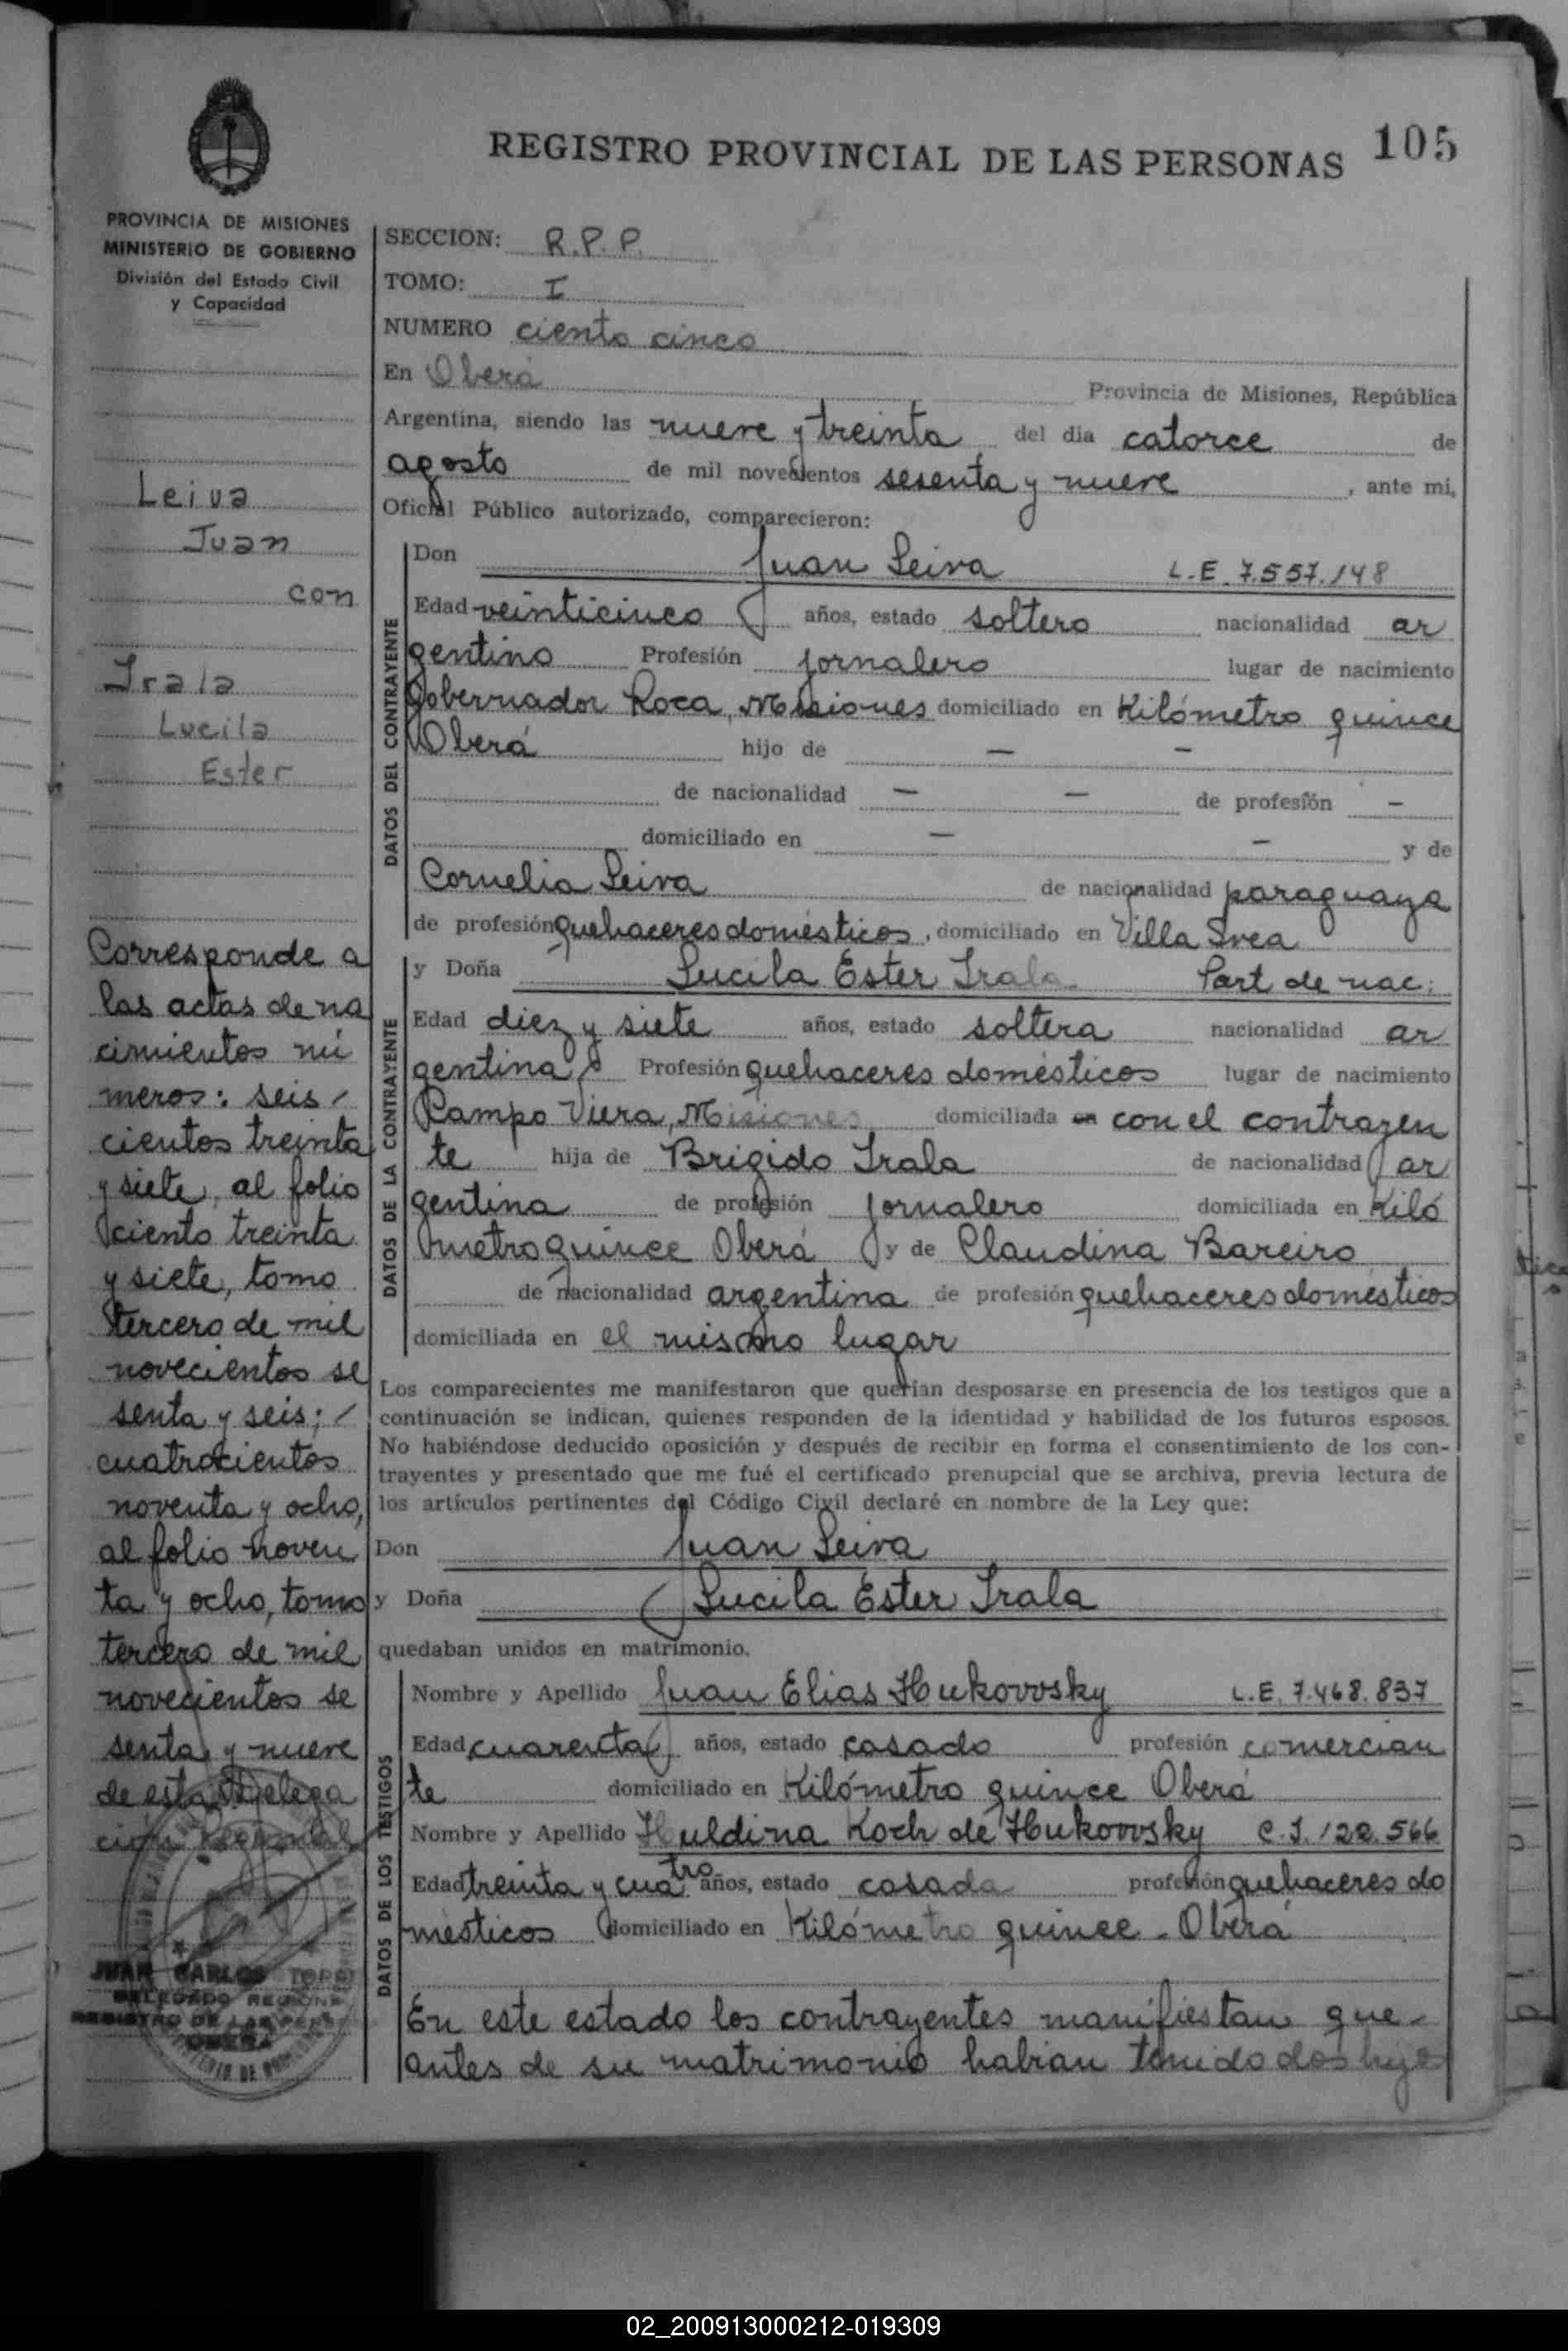 REGISTRO PROVINCIAL DE LAS PERSONAS 105
PROVINCIA DE MISIONES
MINISTERIO DE GOBIERNO
División del Estado Civil
y Capacidad
Leiva
Juan
con
Irala
Lucila
Ester
Corresponde a
las actas de na
cimientos nú
meros: seis
cientos treinta
y siete, al folio
ciento treinta
y siete, tomo
tercero de mil
novecientos se
senta y seis;
cuatrocientos
noventa y ocho,
al folio noven
ta y ocho, tomo
tercero de mil
novecientos se
senta y nueve
de esta Delega
ción Regional
JUAN CARLOS
DELEGADO REGIONAL
REGISTRO DE LAS PERS
OBERA
SECCION: R.P.P.
TOMO: I
NUMERO ciento cinco
En Oberá Provincia de Misiones, República
Argentina, siendo las nueve y treinta del dia catorce de
agosto de mil novecientos sesenta y nueve, ante mi,
Oficial Público autorizado, comparecieron:
DATOS DEL CONTRAYENTE
Don Juan Leiva L.E. 7.557.148
Edad veinticinco años, estado soltero nacionalidad ar
gentino Profesión jornalero lugar de nacimiento
Gobernador Roca, Misiones domiciliado en Kilómetro quince
Oberá hijo de — —
de nacionalidad — — de profesión —
domiciliado en — — y de
Cornelia Leiva de nacionalidad paraguaya
de profesión quehaceres domésticos, domiciliado en Villa Svea
DATOS DE LA CONTRAYENTE
y Doña Lucila Ester Irala Part de nac.
Edad diez y siete años, estado soltera nacionalidad ar
gentina Profesión quehaceres domésticos lugar de nacimiento
Campo Viera, Misiones domiciliada en con el contrayen
te hija de Brigido Irala de nacionalidad ar
gentina de profesión jornalero domiciliada en Kiló
metro quince Oberá y de Claudina Bareiro
de nacionalidad argentina de profesión quehaceres domésticos
domiciliada en el mismo lugar
Los comparecientes me manifestaron que querían desposarse en presencia de los testigos que a
continuación se indican, quienes responden de la identidad y habilidad de los futuros esposos.
No habiéndose deducido oposición y después de recibir en forma el consentimiento de los con-
trayentes y presentado que me fué el certificado prenupcial que se archiva, previa lectura de
los artículos pertinentes del Código Civil declaré en nombre de la Ley que:
Don Juan Leiva
y Doña Lucila Ester Irala
quedaban unidos en matrimonio.
DATOS DE LOS TESTIGOS
Nombre y Apellido Juan Elias Hukovvsky L.E. 7.468.837
Edad cuarenta años, estado casado profesión comercian
te domiciliado en Kilómetro quince Oberá
Nombre y Apellido Huldina Koch de Hukovvsky C.I. 122.566
Edad treinta y cuatro años, estado casada profesión quehaceres do
mésticos domiciliado en Kilómetro quince - Oberá
En este estado los contrayentes manifiestan que
antes de su matrimonio habian tenido dos hijos
02_200913000212-019309